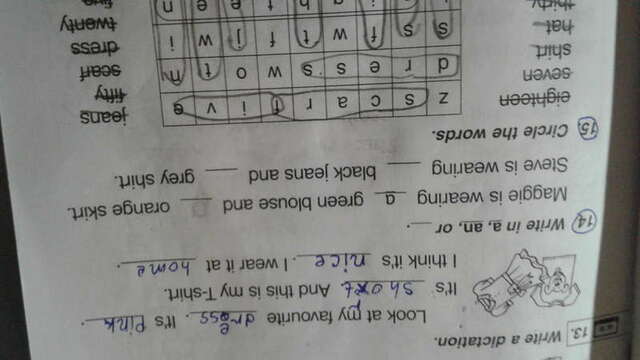 13. Write a dictation.
Look at my favourite dress. It's Pink.
It's short. And this is my T-shirt.
I think it's nice. I wear it at home.
14. Write in a, an, or __.
Maggie is wearing a green blouse and ___ orange skirt.
Steve is wearing ___ black jeans and ___ grey shirt.
15. Circle the words.
eighteen z s c a r f i v e jeans
seven d r e s s w o t fifty
shirt s s f w t f j w i scarf
hat i g h t e e n dress
thirty twenty
five